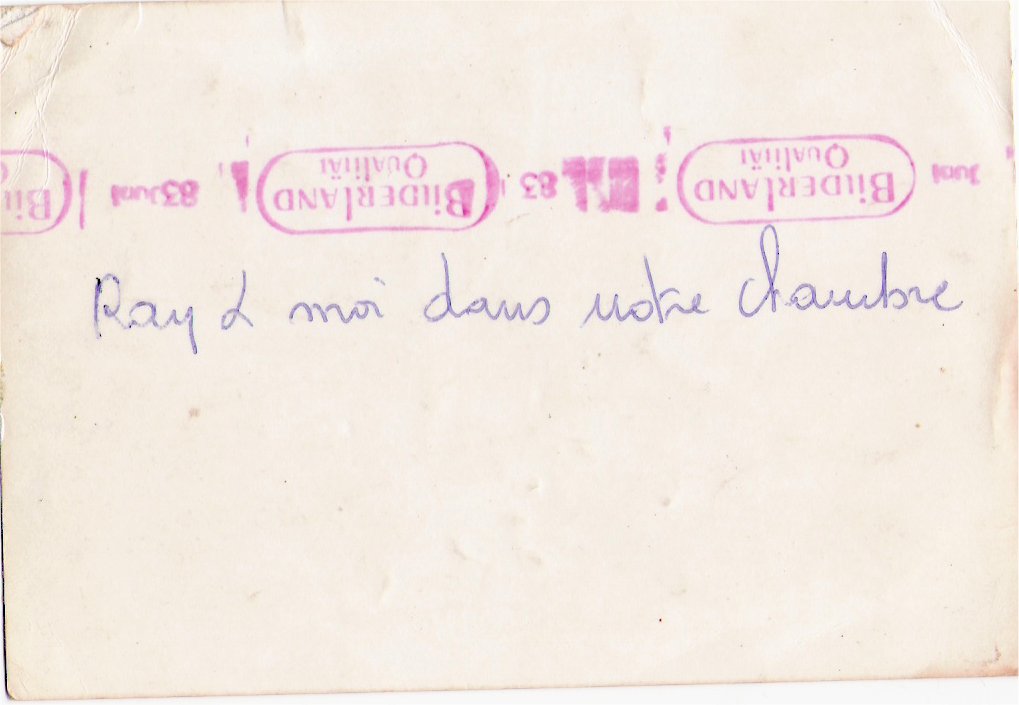 Juni
BilDERlAND
QUAliTÄT
83
BilDERlAND
QUAliTÄT
83 Juni
Ray & moi dans notre chambre